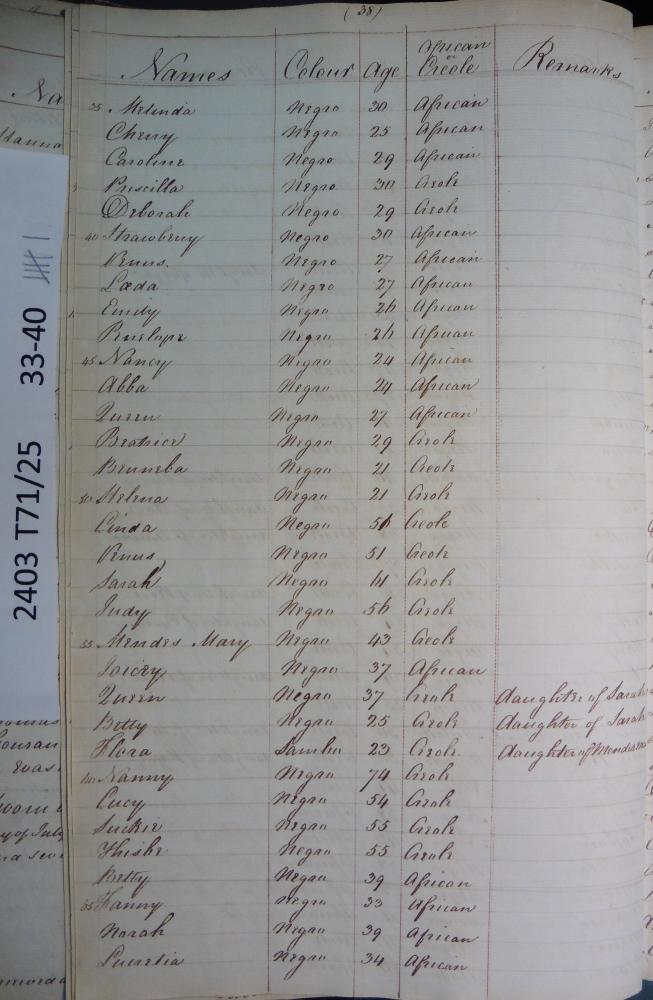 (38)
Names Colour Age African or Creole Remarks
35 Melinda Negro 30 African
Cherry Negro 25 African
Caroline Negro 29 African
Priscilla Negro 30 Creole
Deborah Negro 29 Creole
40 Strawberry Negro 30 African
Venus. Negro 27 African
Læda Negro 27 African
Emily Negro 26 African
Penelope Negro 26 African
45 Nancy Negro 24 African
Abba Negro 24 African
Queen Negro 27 African
Beatrice Negro 29 Creole
Benneba Negro 21 Creole
50 Helena Negro 21 Creole
Linda Negro 56 Creole
Venus Negro 51 Creole
Sarah Negro 61 Creole
Judy Negro 56 Creole
55 Mendes Mary Negro 43 Creole
Joicey Negro 37 African
Queen Negro 37 Creole daughter of Sarah
Betty Negro 25 Creole daughter of Sarah
Flora Sambo 23 Creole daughter of Mendes
60 Nanny Negro 74 Creole
Lucy Negro 54 Creole
Suckie Negro 55 Creole
Thisbe Negro 55 Creole
Betty Negro 39 African
65 Fanny Negro 33 African
Norah Negro 39 African
Lucretia Negro 34 African
2403 T71/25 33-40